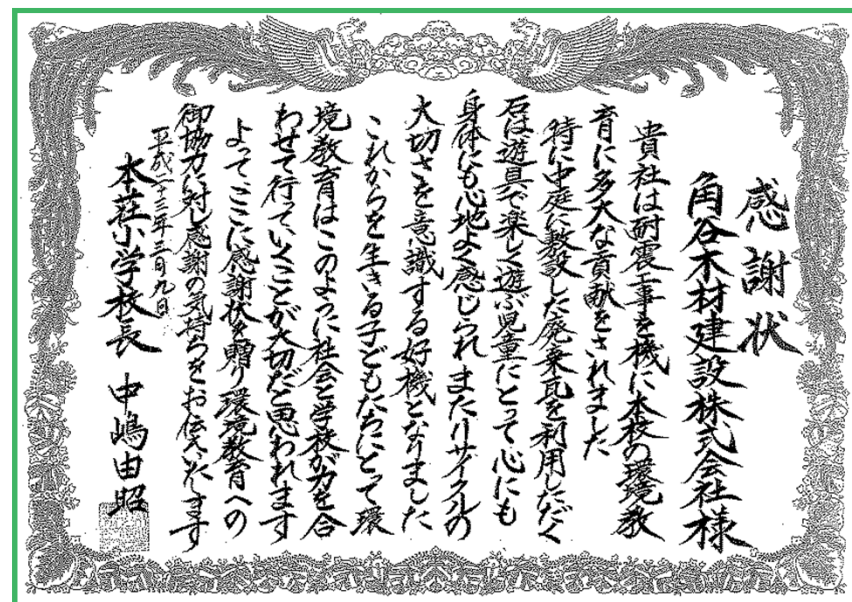 感謝状
角谷木材建設株式会社様
貴社は耐震工事を機に本校の環境教
育に多大な貢献をされました
特に中庭に敷設した廃棄瓦を利用したがく
石は遊具で楽しく遊ぶ児童にとって心にも
身体にも心地よく感じられまたリサイクルの
大切さを意識する好機となりました
これからを生きる子どもたちにとって環
境教育はこのように社会と学校が力を合
わせて行っていくことが大切だと思われます
よってここに感謝状を贈り環境教育への
御協力に対し感謝の気持ちをお伝えいたします
平成二十三年三月九日
本荘小学校長 中嶋由昭